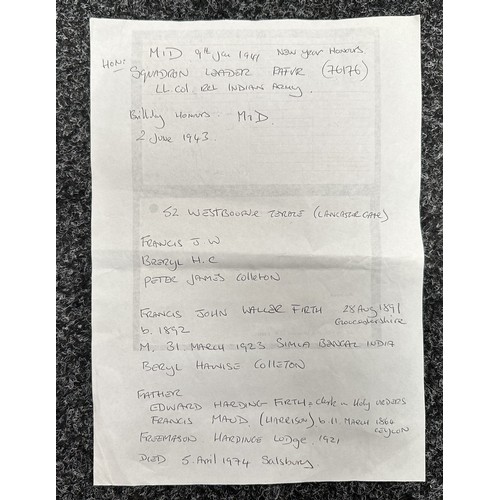 MiD 9th Jan 1941 New Year Honours.
HON: SQUADRON LEADER RAFVR (76176)
Lt. Col. Ret Indian Army.
Birthday Honours. MiD.
2 June 1943.
52 WESTBOURNE TERRACE (LANCASTER GATE)
FRANCIS J W
BERYL H. C
PETER JAMES COLLETON
FRANCIS JOHN WALLER FIRTH 28 Aug 1891
b. 1892 Gloucestershire
M. 31. MARCH 1923 SIMLA BENGAL INDIA
BERYL HAWISE COLLETON
FATHER
EDWARD HARDING FIRTH = Clerk in Holy ORDERS
FRANCIS MAUD (HARRISON) b. 11. MARCH 1860
CEYLON
FREEMASON HARDINGE LODGE. 1921
DIED 5. April 1974 Salsbury